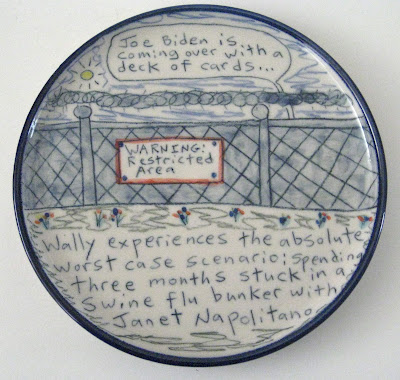 Joe Biden is
coming over with a
deck of cards...
WARNING:
Restricted
Area
Wally experiences the absolute
worst case scenario; spending
three months stuck in a
swine flu bunker with
Janet Napolitano